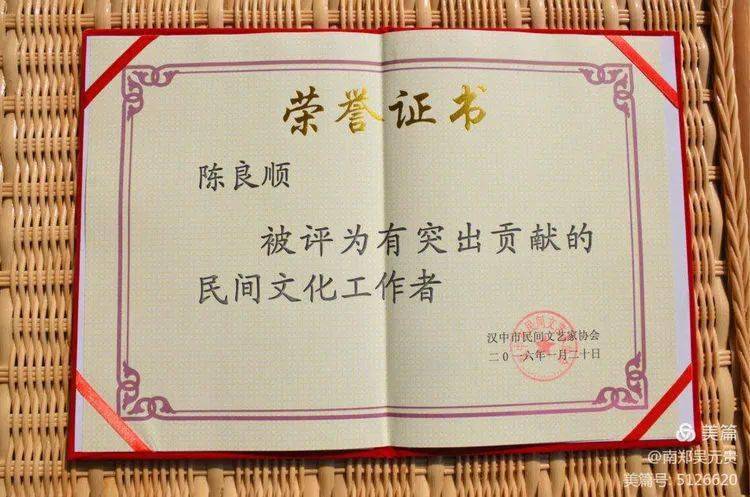 荣誉证书
陈良顺
被评为有突出贡献的
民间文化工作者
汉中市民间文艺家协会
二0一六年一月二十日
美篇
@南郑吴元贵
美篇号: 5126620